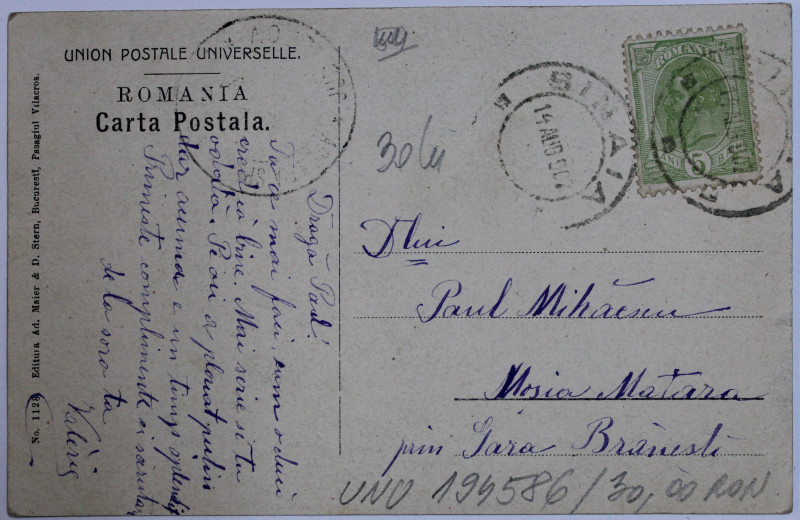 UNION POSTALE UNIVERSELLE.
ROMANIA
Carta Postala.
No. 1128 Editura Ad. Maier & D. Stern, Bucuresti, Pasagiul Vilacros.
Dragă Paul!
Tu ce mai faci cum o duci
cred că bine. Mai scrie si tu
odată. Pe aici a plouat puțin
dar acuma e un timp splendid
Primeste complimente si sărutări
de la sora ta
Valérie
30 lei
SINAIA
14 AUG 907
ROMANIA
5
BANI
SINAIA
Dlui
Paul Mihăescu
Mosia Matara
prin Gara Brănesti
UNU 194586/30,00 RON